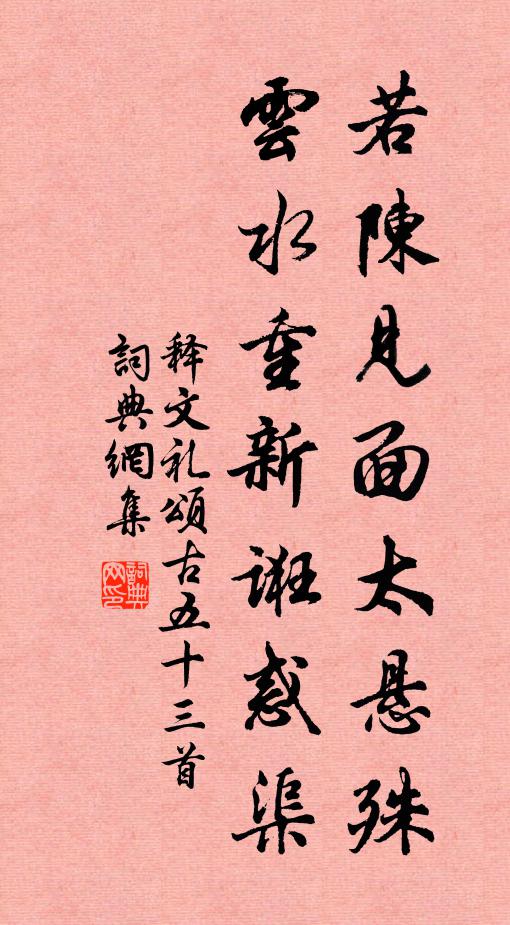 若陳見面太悬殊
雲水重新誑惑渠
释文礼頌古五十三首
詞典網集
詞典网印